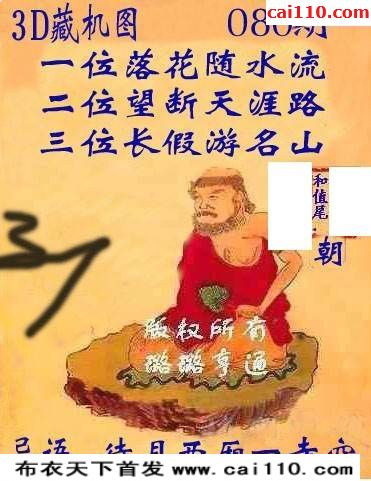 cai110.com
3D藏机图 080期
一位落花随水流
二位望断天涯路
三位长假游名山
和值尾
朝
版权所有
璐璐亨通
布衣天下首发 www.cai110.com